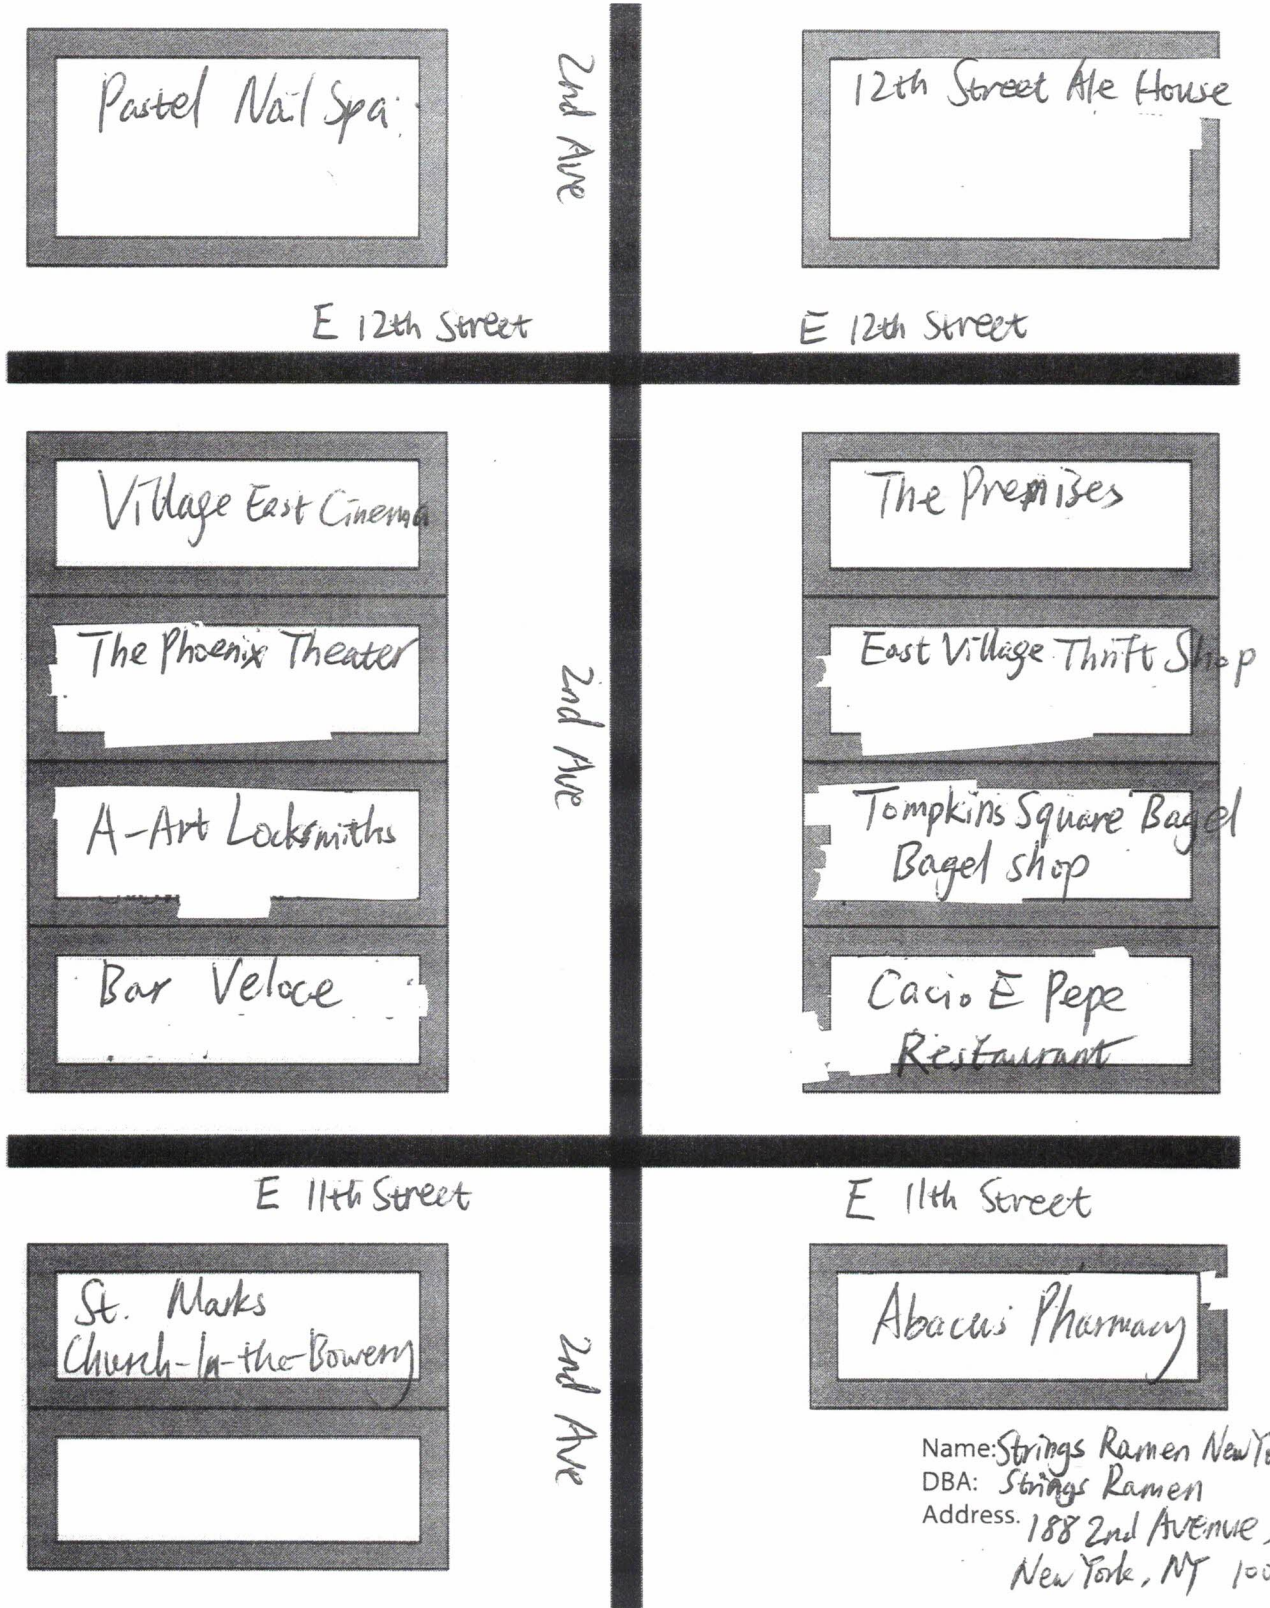 Pastel Nail Spa
2nd Ave
12th Street Ale House
E 12th Street
E 12th Street
Village East Cinema
The Premises
The Phoenix Theater
2nd Ave
East Village Thrift Shop
A-Art Locksmiths
Tompkins Square Bagel
Bagel shop
Bar Veloce
Cacio E Pepe
Restaurant
E 11th Street
E 11th Street
St. Marks
Church-In-the-Bowery
2nd Ave
Abacus Pharmacy
Name: Strings Ramen New
DBA: Strings Ramen
Address. 188 2nd Avenue,
New York, NY